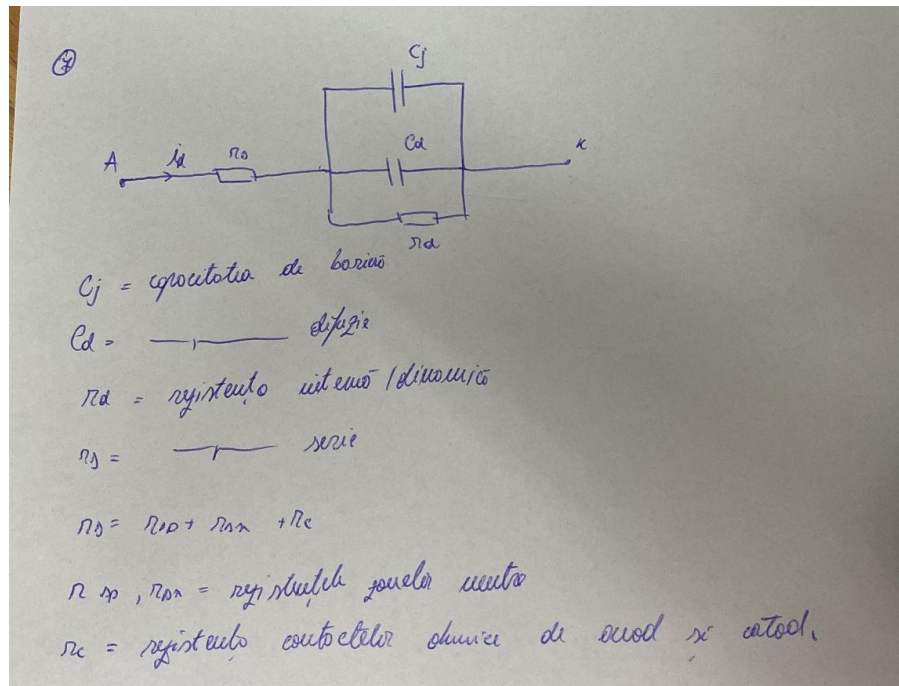 7
Cj
A id rs Cd K
rd
Cj = capacitatea de barieră
Cd = —''— difuzie
rd = rezistența internă / dinamică
rs = —''— serie
rs = rsp + rsn + rc
rsp, rsn = rezistențele zonelor neutre
rc = rezistența contactelor ohmice de anod și catod.